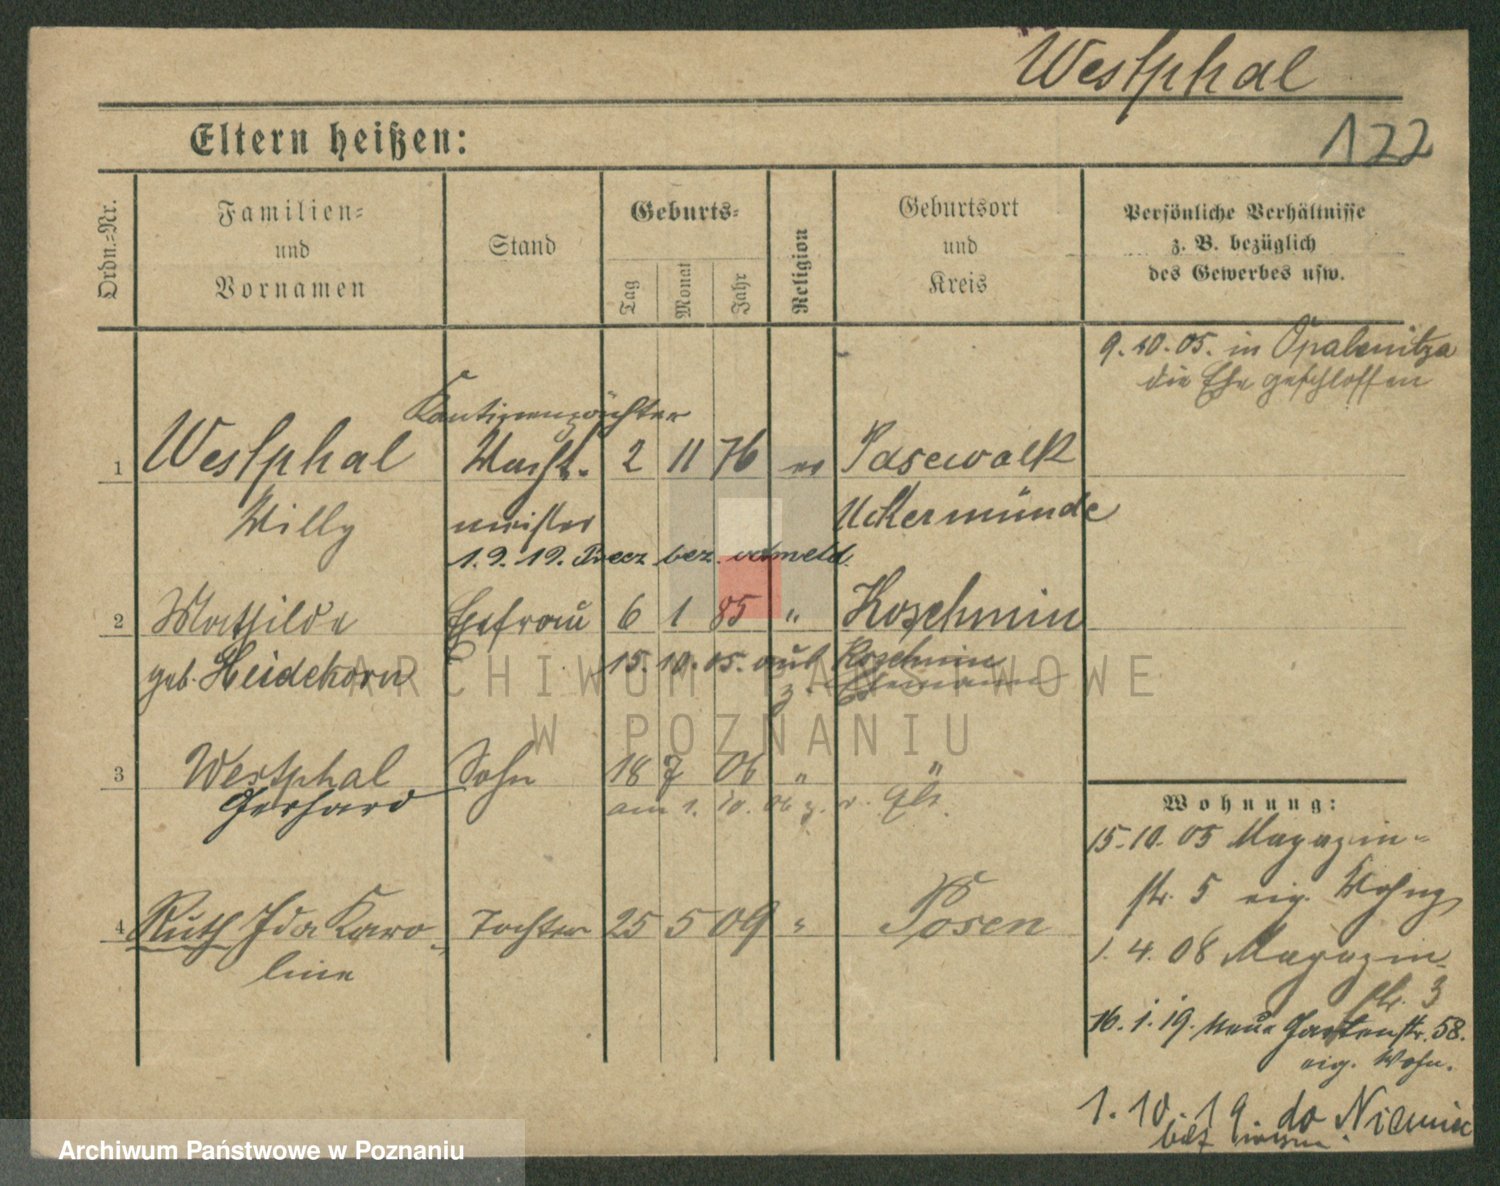 Westphal
122
Eltern heißen:
Ordn.-Nr.
Familien-
und
Vornamen
Stand
Geburts-
Tag
Monat
Jahr
Religion
Geburtsort
und
Kreis
Persönliche Verhältnisse
z. B. bezüglich
des Gewerbes usw.
9.10.05. in Opalenitza
die Ehe geschlossen
Kantinenpächter
1 Westphal Wacht- 2 11 76 ev Pasewalk
Willy meister Uckermünde
1.9.19. bez.
2 Mathilde Ehefrau 6 1 85 " Koschmin
geb. Heidekorn 15.10.05. aus Koschmin
z. Ehemann
3 Westphal Sohn 18 7 06 " "
Gerhard am 1.10.06 z. v.
4 Ruth Ida Karo- Tochter 25 5 09 " Posen
line
Wohnung:
15.10.05 Magazin-
str. 5 eig. Wohng
1.4.08 Magazin-
str. 3
16.1.19. Neue Gartenstr. 58.
eig. Wohn.
1.10.19. do Niemiec
ARCHIWUM PAŃSTWOWE
W POZNANIU
Archiwum Państwowe w Poznaniu